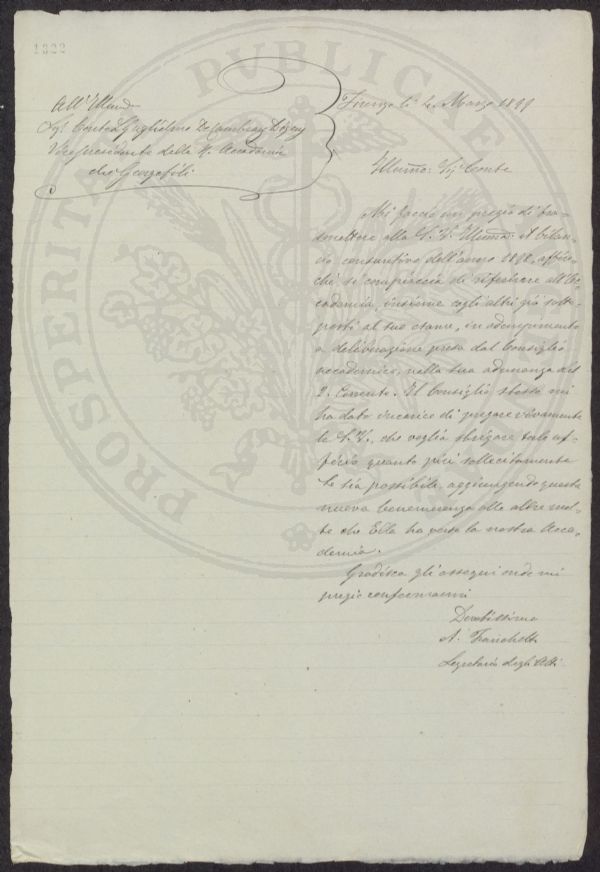 1322
All' Illmo
Sig. Conte Guglielmo De Cambray Digny
Vicepresidente della R. Accademia
dei Georgofili
Firenze li Marzo 1899
Illmo: Sig. Conte
Mi faccio un pregio di tra-
smettere alla S. V. Illma: il bilan-
cio consuntivo dell'anno 1898, affin-
chè si compiaccia di riferirne all'Ac-
cademia, insieme cogli altri già sotto-
posti al suo esame, in adempimento
a deliberazione presa dal Consiglio
accademico, nella sua adunanza del
2. Corrente. Il Consiglio stesso mi
ha dato incarico di pregare vivamente
la S. V., che voglia sbrigare tale uf-
ficio quanto più sollecitamente
Le sia possibile, aggiungendo questa
nuova benemerenza alle altre mol-
te che Ella ha verso la nostra Acca-
demia.
Gradisca gli ossequi onde mi
pregio confermarmi
Devotissimo
A. Franchetti
Segretario degli Atti
PROSPERITATI PUBLICAE